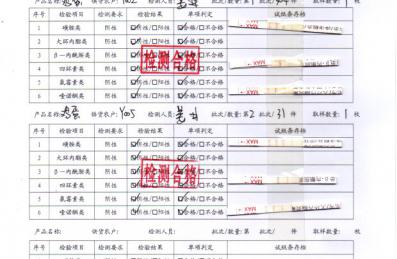 产品名称: 鸡蛋 供货农户: Y002 检测人员: 批次/数量: 第 批次/ 件 取样数量: 1 枚
序号 检验项目 检测要求 检验结果 单项判定 试纸条存档
1 磺胺类 阴性 阴性/□阳性 合格/□不合格
2 大环内酯类 阴性 阴性/□阳性 合格/□不合格
3 β-内酰胺类 阴性 阴性/□阳性 合格/□不合格
4 四环素类 阴性 阴性/□阳性 合格/□不合格
5 氯霉素类 阴性 阴性/□阳性 合格/□不合格
6 喹诺酮类 阴性 阴性/□阳性 合格/□不合格
检测合格
MAX
产品名称: 鸡蛋 供货农户: Y005 检测人员: 批次/数量: 第 2 批次/ 31 件 取样数量: 1 枚
序号 检验项目 检测要求 检验结果 单项判定 试纸条存档
1 磺胺类 阴性 阴性/□阳性 合格/□不合格
2 大环内酯类 阴性 阴性/□阳性 合格/□不合格
3 β-内酰胺类 阴性 阴性/□阳性 合格/□不合格
4 四环素类 阴性 阴性/□阳性 合格/□不合格
5 氯霉素类 阴性 阴性/□阳性 合格/□不合格
6 喹诺酮类 阴性 阴性/□阳性 合格/□不合格
检测合格
MAX
产品名称: 供货农户: 检测人员: 批次/数量: 第 批次/ 件 取样数量: 枚
序号 检验项目 检测要求 检验结果 单项判定 试纸条存档